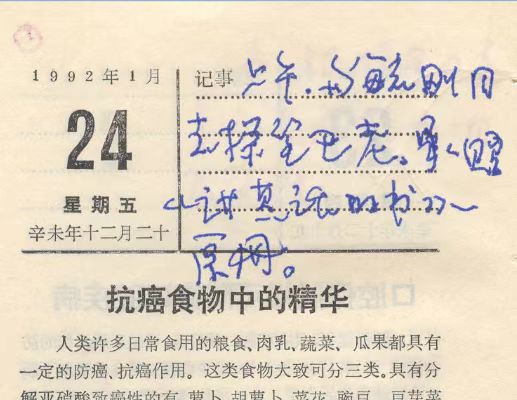 1992年1月
24
星期五
辛未年十二月二十
记事
上午,与毓刚同
去探望巴老。
《讲真话的书》
抗癌食物中的精华
人类许多日常食用的粮食、肉乳、蔬菜、瓜果都具有
一定的防癌、抗癌作用。这类食物大致可分三类。具有分
解亚硝酸致癌性的有,萝卜、胡萝卜、菜花、豌豆、豆芽菜